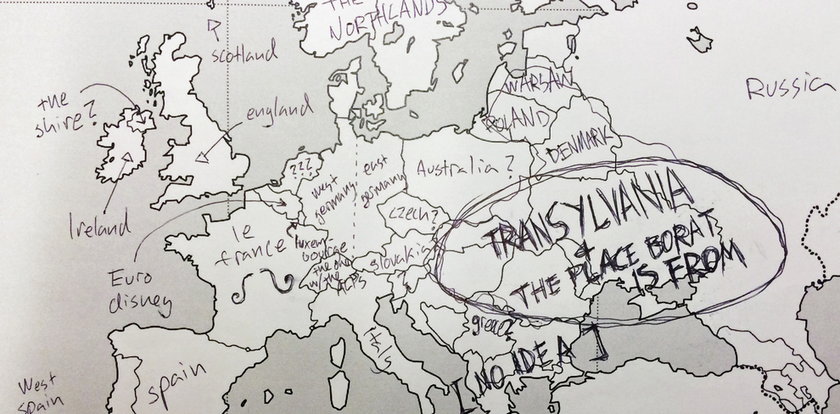 THE
NORTHLANDS
scotland
the
shire?
england
Ireland
Euro
disney
WARSAW
POLAND
DENMARK
RUSSIA
???
west
germany
east
germany
Australia?
czech?
slovakia
le
france
luxem
bourge
the one
w/the
ALPS
TRANSYLVANIA
+
THE PLACE BORAT
IS FROM
greece
Italy
[NO IDEA]
spain
West
spain